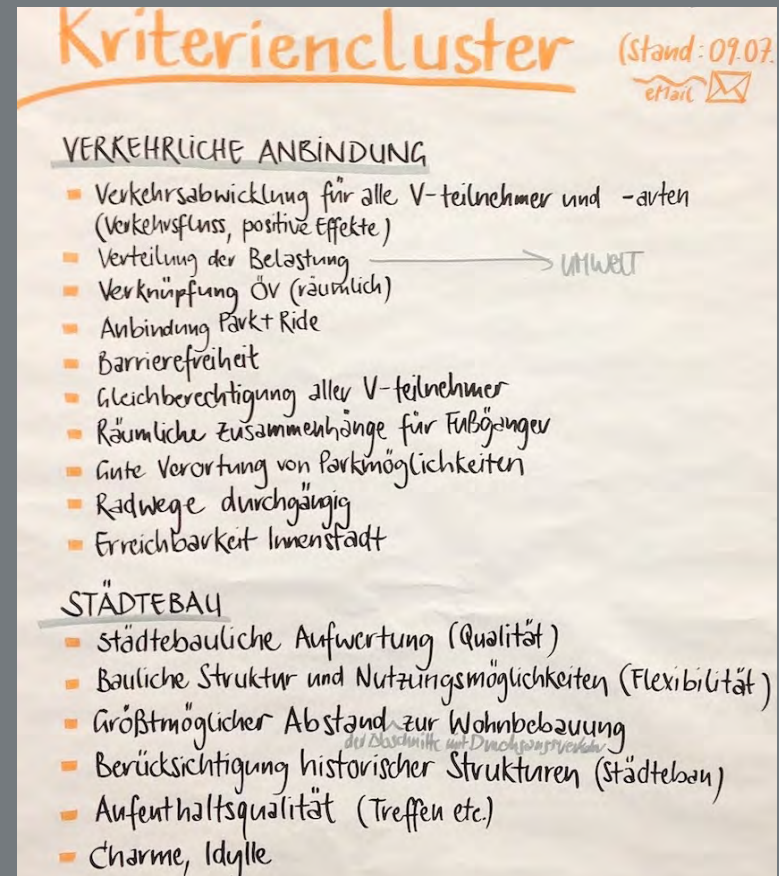 Kriteriencluster (Stand: 09.07.
eMail
VERKEHRLICHE ANBINDUNG
Verkehrsabwicklung für alle V-teilnehmer und -arten
(Verkehrsfluss, positive Effekte)
Verteilung der Belastung → UMWELT
Verknüpfung ÖV (räumlich)
Anbindung Park+Ride
Barrierefreiheit
Gleichberechtigung aller V-teilnehmer
Räumliche Zusammenhänge für Fußgänger
Gute Verortung von Parkmöglichkeiten
Radwege durchgängig
Erreichbarkeit Innenstadt
STÄDTEBAU
Städtebauliche Aufwertung (Qualität)
Bauliche Struktur und Nutzungsmöglichkeiten (Flexibilität)
Größtmöglicher Abstand zur Wohnbebauung
der Abschnitte mit Durchgangsverkehr
Berücksichtigung historischer Strukturen (Städtebau)
Aufenthaltsqualität (Treffen etc.)
Charme, Idylle